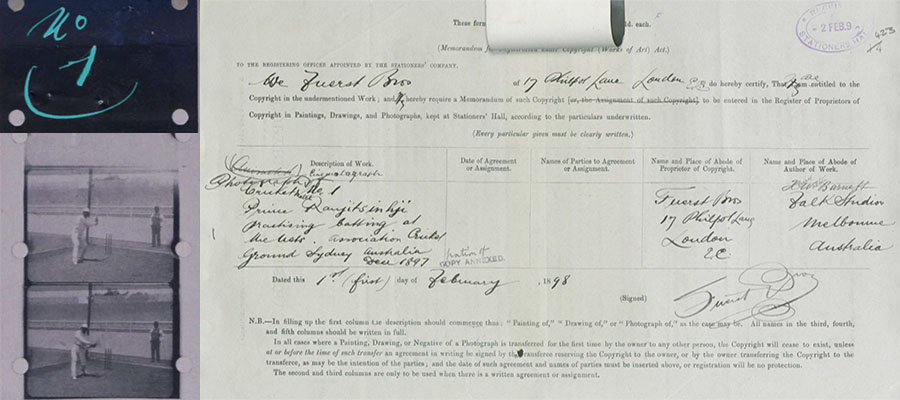 No
1
These forms
ld. each.
2 FEB. 9
STATIONERS' HALL
423
(Memorandum for Registration under Copyright (Works of Art) Act.)
TO THE REGISTERING OFFICER APPOINTED BY THE STATIONERS' COMPANY.
We Fuerst Bros of 17 Philpot Lane London E.C. do hereby certify, That we am entitled to the
Copyright in the undermentioned Work; and hereby require a Memorandum of such Copyright [or, the Assignment of such Copyright] to be entered in the Register of Proprietors
of Copyright in Paintings, Drawings, and Photographs, kept at Stationers' Hall, according to the particulars underwritten.
(Every particular given must be clearly written.)
Description of Work.
Date of Agreement or Assignment.
Names of Parties to Agreement or Assignment.
Name and Place of Abode of Proprietor of Copyright.
Name and Place of Abode of Author of Work.
Photograph
Cricket No 1
Prince Ranjitsinhji
practising batting at
the nets. Association Cricket
Ground Sydney Australia
Dec 1897
COPY ANNEXED.
Fuerst Bros
17 Philpot Lane
London
E.C.
Barnett
Falk Studios
Melbourne
Australia
Dated this 1st (first) day of February, 1898
(Signed) Fuerst Bros
N.B.—In filling up the first column the description should commence thus: "Painting of," "Drawing of," or "Photograph of," as the case may be. All names in the third, fourth,
and fifth columns should be written in full.
In all cases where a Painting, Drawing, or Negative of a Photograph is transferred for the first time by the owner to any other person, the Copyright will cease to exist, unless
at or before the time of such transfer an agreement in writing be signed by the transferee reserving the Copyright to the owner, or by the owner transferring the Copyright to the
transferee, as may be the intention of the parties; and the date of such agreement and names of parties must be inserted above, or registration will be no protection.
The second and third columns are only to be used when there is a written agreement or assignment.